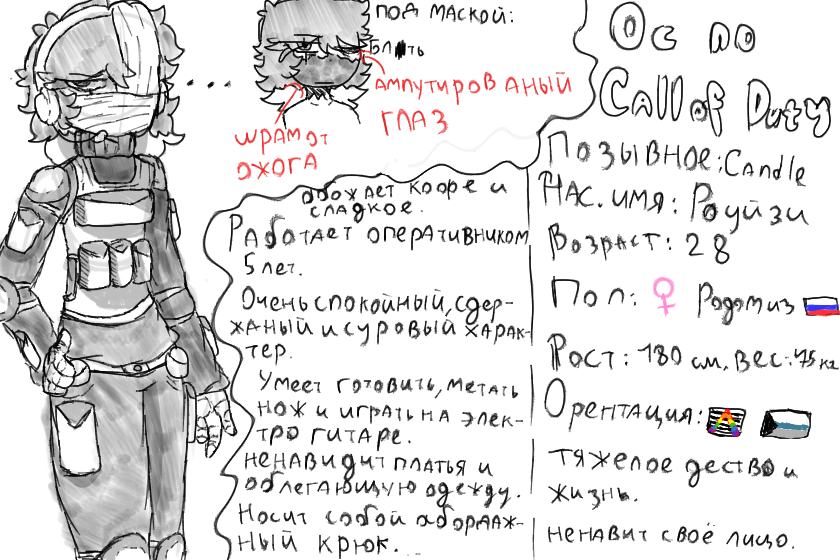 под маской:
Ампутированый
глаз
шрам от
ожога
Ос по
Call of Duty
Позывное: Candle
Нас. имя: Роуйзи
Возраст: 28
Пол: ♀ Родом из
Рост: 180 см, вес: 75 кг
Орентация:
тяжелое дество и
жизнь.
ненавит своё лицо.
обожает кофе и
сладкое.
Работает оперативником
5 лет.
Очень спокойный, сдер-
жаный и суровый харак-
тер.
Умеет готовить, метать
нож и играть на элек-
тро гитаре.
ненавидит платья и
облегающую одежду.
Носит собой абордаж-
ный крюк.